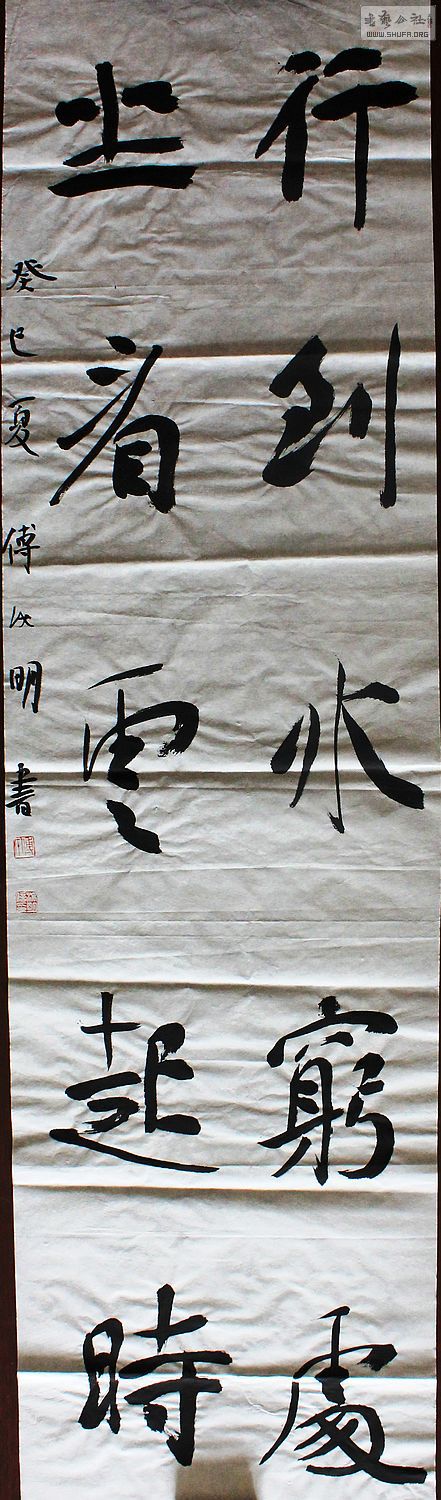 行到水窮處
坐看雲起時
癸巳夏傅明書
書藝公社
WWW.SHUFA.ORG